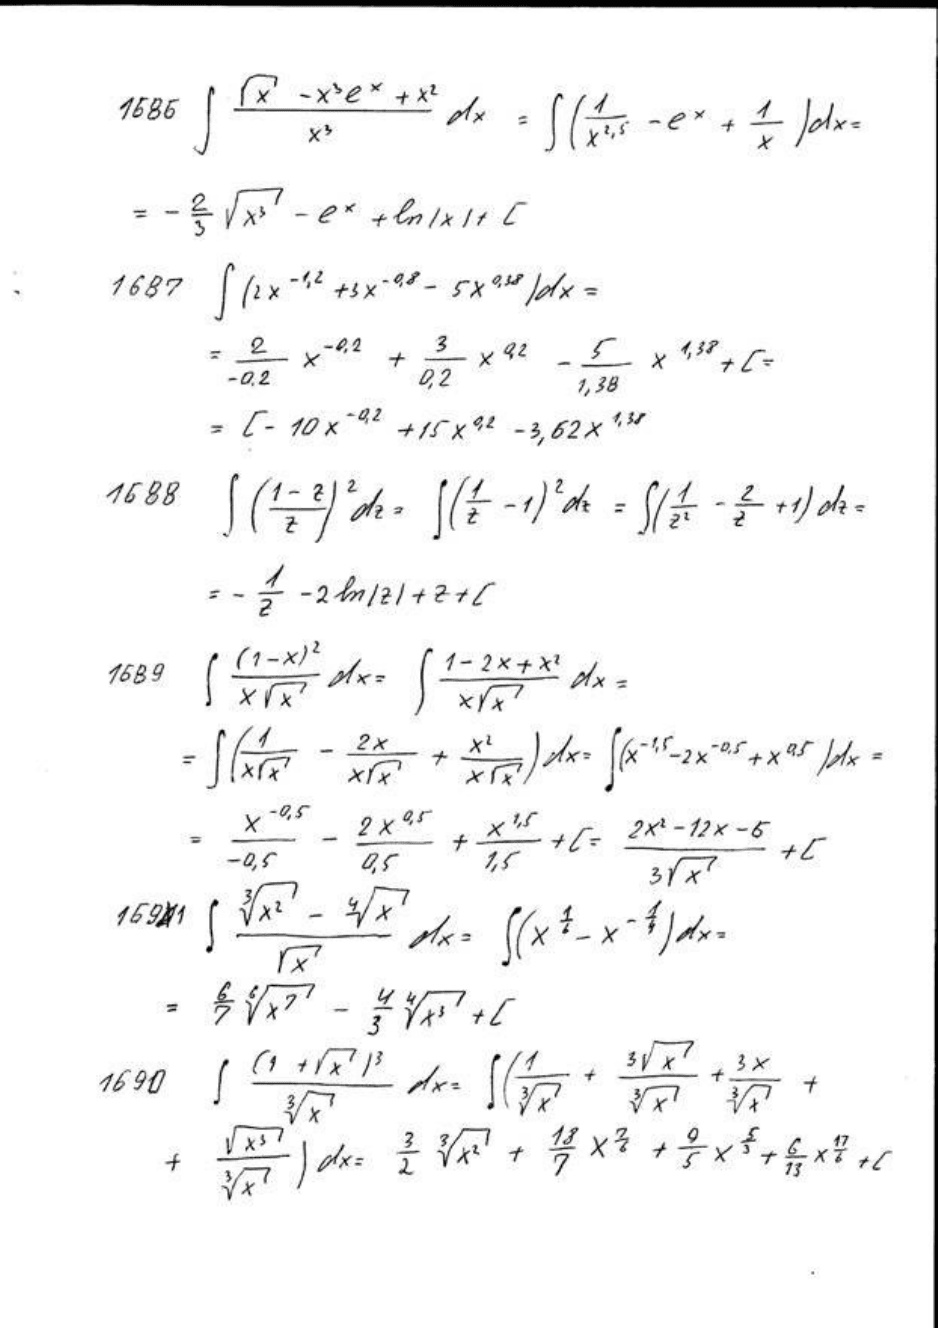 1686 ∫ (√x - x³eˣ + x²)/x³ dx = ∫(1/x^2,5 - eˣ + 1/x)dx =
= -2/3 √x³ - eˣ + ln|x| + C
1687 ∫(2x^-1,2 + 3x^-0,8 - 5x^0,38)dx =
= 2/-0.2 x^-0,2 + 3/0,2 x^0,2 - 5/1,38 x^1,38 + C =
= C - 10x^-0,2 + 15x^0,2 - 3,62x^1,38
1688 ∫((1-z)/z)² dz = ∫(1/z - 1)² dz = ∫(1/z² - 2/z + 1)dz =
= -1/z - 2 ln|z| + z + C
1689 ∫ (1-x)²/(x√x) dx = ∫ (1-2x+x²)/(x√x) dx =
= ∫(1/(x√x) - 2x/(x√x) + x²/(x√x))dx = ∫(x^-1,5 - 2x^-0,5 + x^0,5)dx =
= x^-0,5/-0,5 - 2x^0,5/0,5 + x^1,5/1,5 + C = (2x² - 12x - 6)/(3√x) + C
1691 ∫ (∛x² - ∜x)/√x dx = ∫(x^(1/6) - x^(-1/4))dx =
= 6/7 ⁶√x⁷ - 4/3 ∜x³ + C
1690 ∫ (1+√x)³/∛x dx = ∫(1/∛x + 3√x/∛x + 3x/∛x +
+ √x³/∛x)dx = 3/2 ∛x² + 18/7 x^(7/6) + 9/5 x^(5/3) + 6/13 x^(17/6) + C